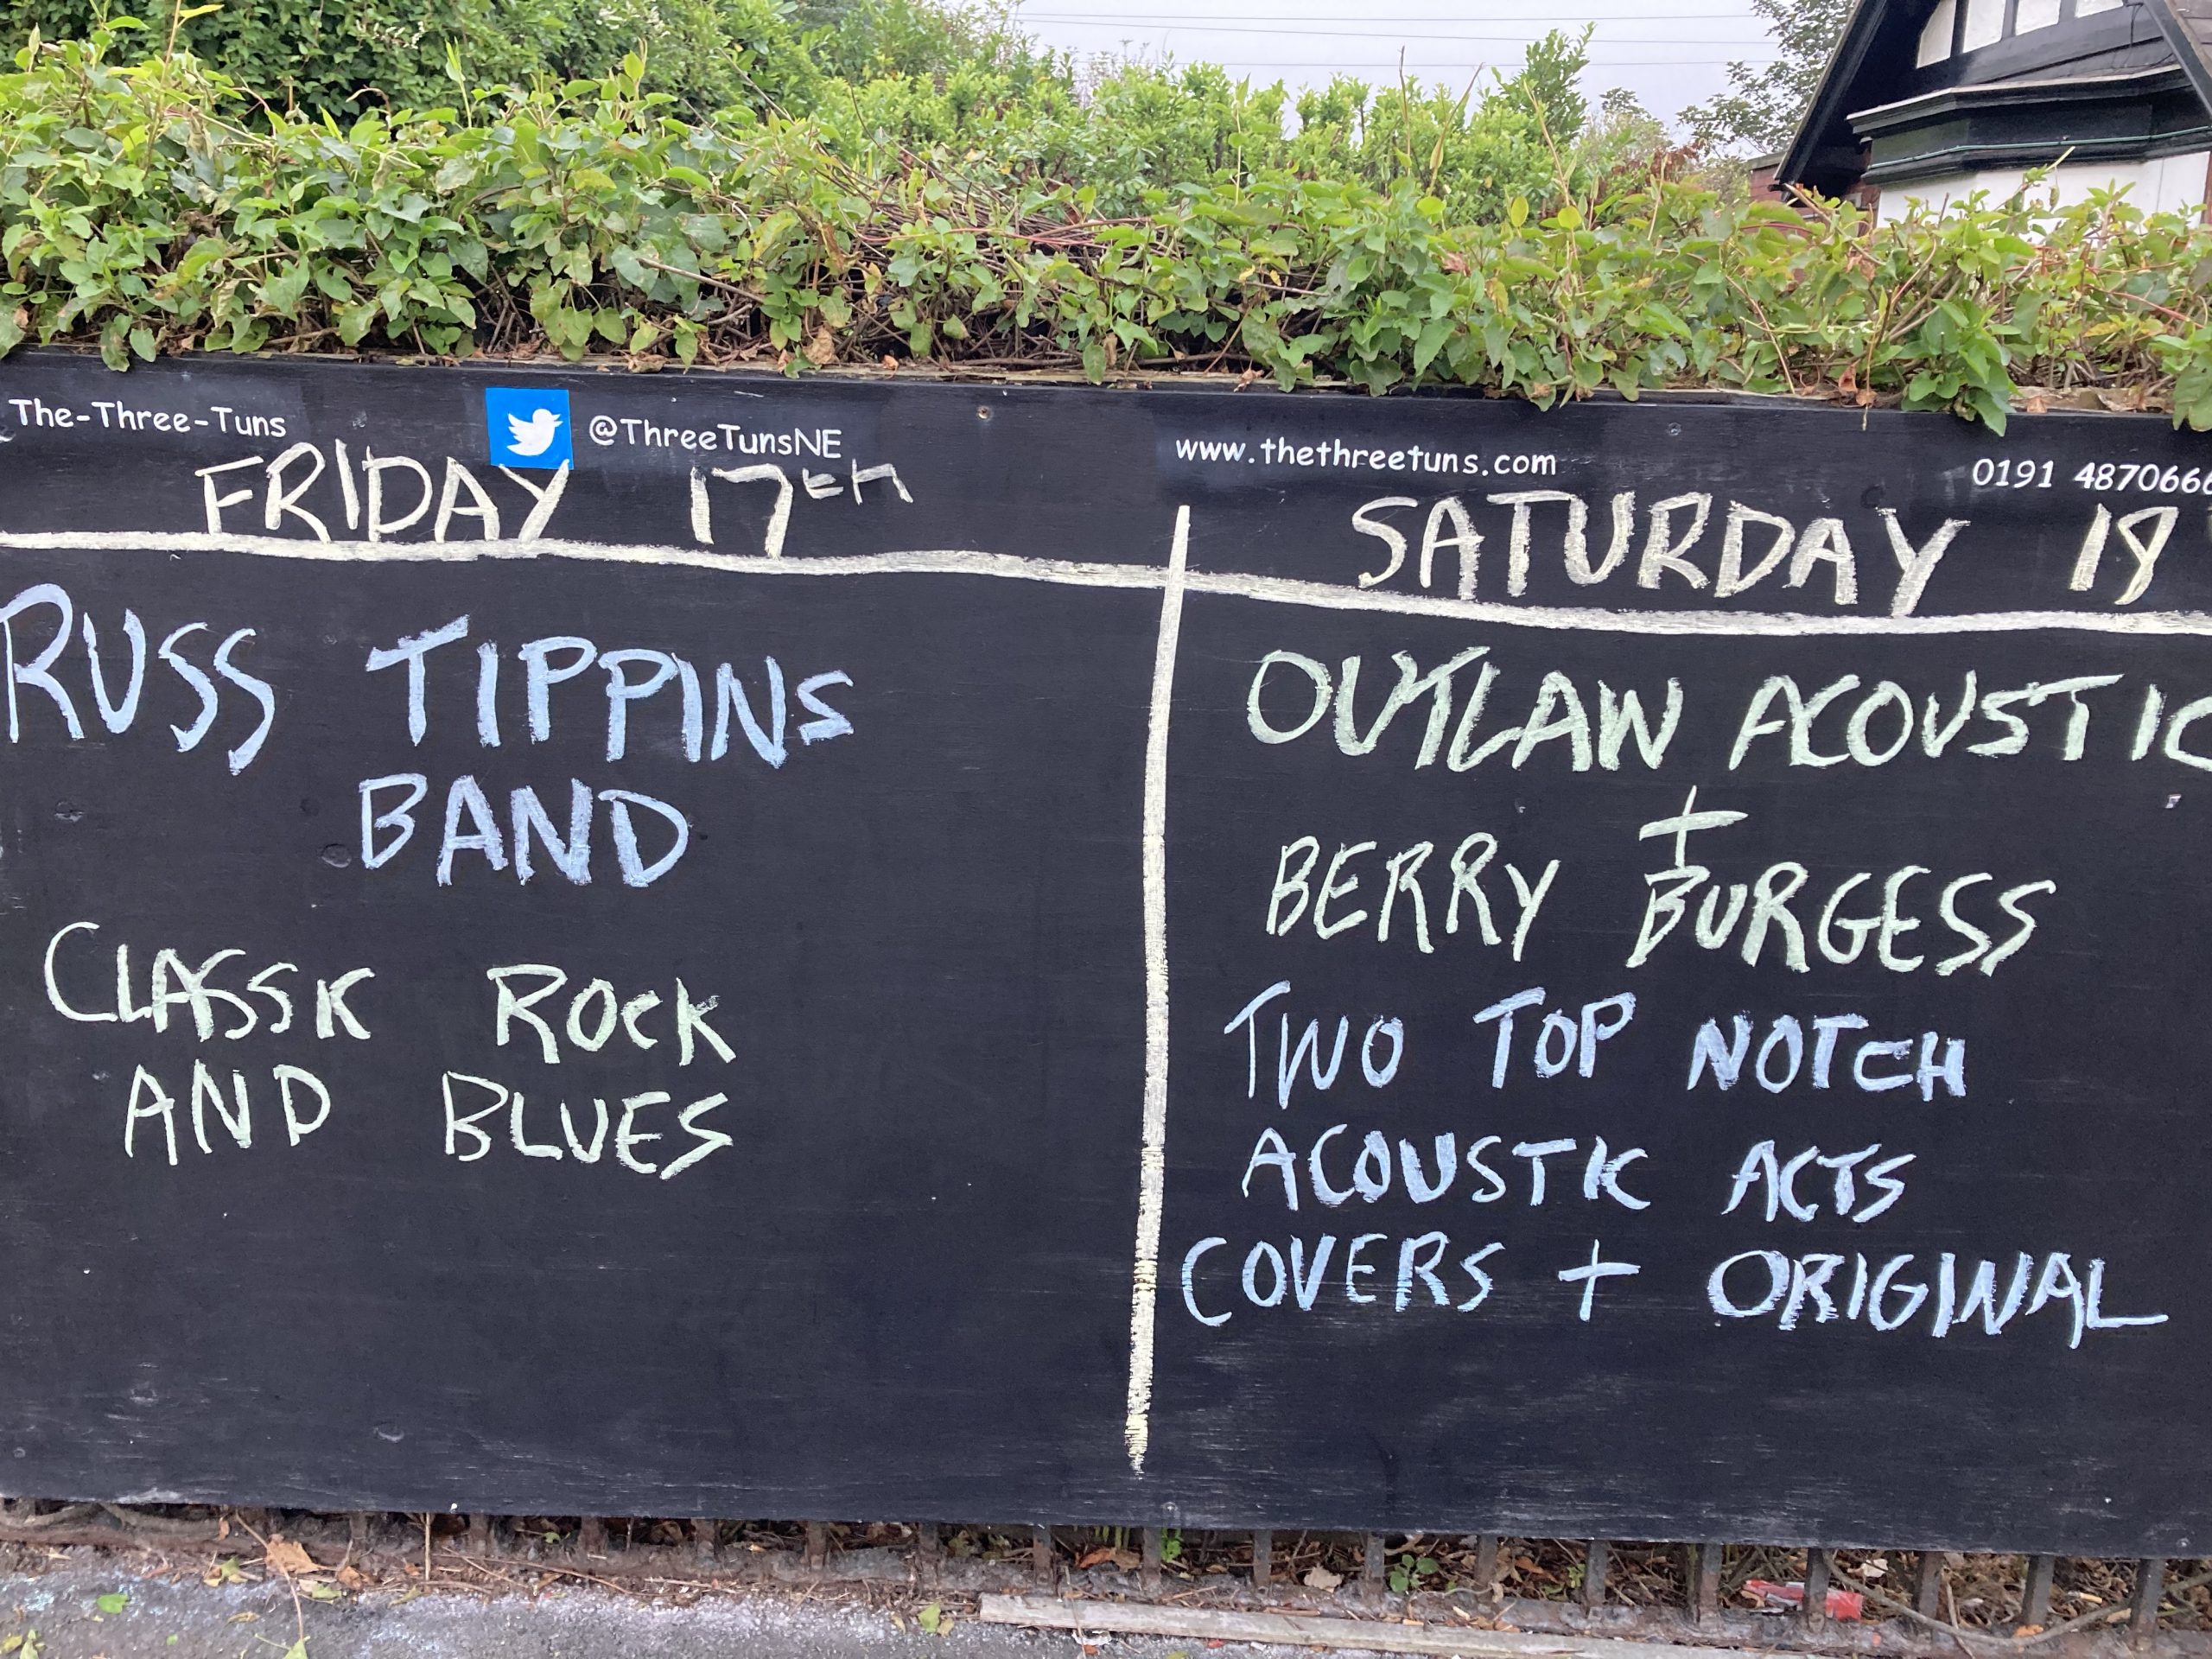 The-Three-Tuns
@ThreeTunsNE
www.thethreetuns.com
0191 4870666
FRIDAY 17TH
RUSS TIPPINS
BAND
CLASSIC ROCK
AND BLUES
SATURDAY 18
OUTLAW ACOUSTIC
+
BERRY BURGESS
TWO TOP NOTCH
ACOUSTIC ACTS
COVERS + ORIGINAL